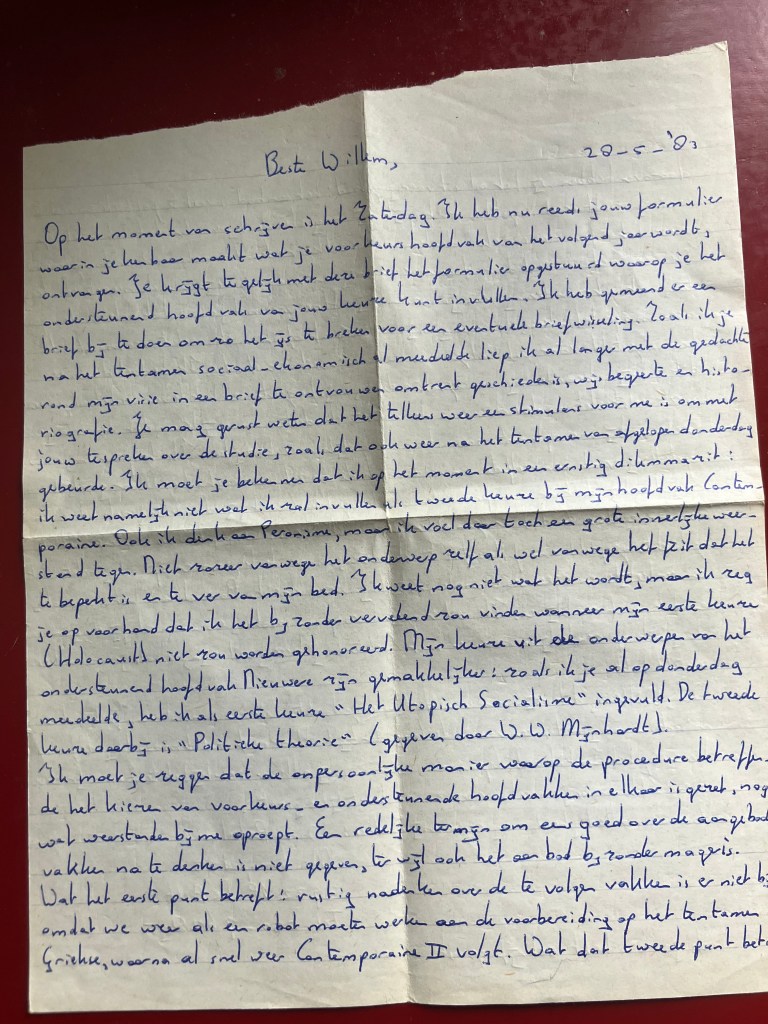 Beste Willem,
28-5-'83
Op het moment van schrijven is het Zaterdag. Ik heb nu reeds jouw formulier
waarin je kenbaar maakt wat je voorkeurshoofdvak van het volgend jaar wordt,
ontvangen. Je krijgt tegelijk met deze brief het formulier opgestuurd waarop je het
ondersteunend hoofdvak van jouw keuze kunt invullen. Ik heb gemeend er een
brief bij te doen om zo het ijs te breken voor een eventuele briefwisseling. Zoals ik je
na het tentamen sociaal-ekonomisch al meedeelde liep ik al langer met de gedachte
rond mijn visie in een brief te ontvouwen omtrent geschiedenis, wijsbegeerte en histo-
riografie. Je mag gerust weten dat het telkens weer een stimulans voor me is om met
jouw te spreken over de studie, zoals dat ook weer na het tentamen van afgelopen donderdag
gebeurde. Ik moet je bekennen dat ik op het moment in een ernstig dilemma zit:
ik weet namelijk niet wat ik zal invullen als tweede keuze bij mijn hoofdvak Contem-
poraine. Ook ik denk aan Peronisme, maar ik voel daar toch een grote innerlijke weer-
stand tegen. Niet zozeer vanwege het onderwerp zelf als wel vanwege het feit dat het
te beperkt is en te ver van mijn bed. Ik weet nog niet wat het wordt, maar ik zeg
je op voorhand dat ik het bijzonder vervelend zou vinden wanneer mijn eerste keuze
(Holocaust) niet zou worden gehonoreerd. Mijn keuze uit de onderwerpen van het
ondersteunend hoofdvak Nieuwere zijn gemakkelijker: zoals ik je al op donderdag
meedeelde, heb ik als eerste keuze "Het Utopisch Socialisme" ingevuld. De tweede
keuze daarbij is "Politieke theorie" (gegeven door W.W. Mijnhardt).
Ik moet je zeggen dat de onpersoonlijke manier waarop de procedure betreffen-
de het kiezen van voorkeurs- en ondersteunende hoofdvakken in elkaar is gezet, nog
wat weerstanden bij me oproept. Een redelijke termijn om eens goed over de aangebod
vakken na te denken is niet gegeven, terwijl ook het aanbod bijzonder mager is.
Wat het eerste punt betreft: rustig nadenken over de te volgen vakken is er niet bij
omdat we weer als een robot moeten werken aan de voorbereiding op het tentamen
Griekse, waarna al snel weer Contemporaine II volgt. Wat dat tweede punt betr